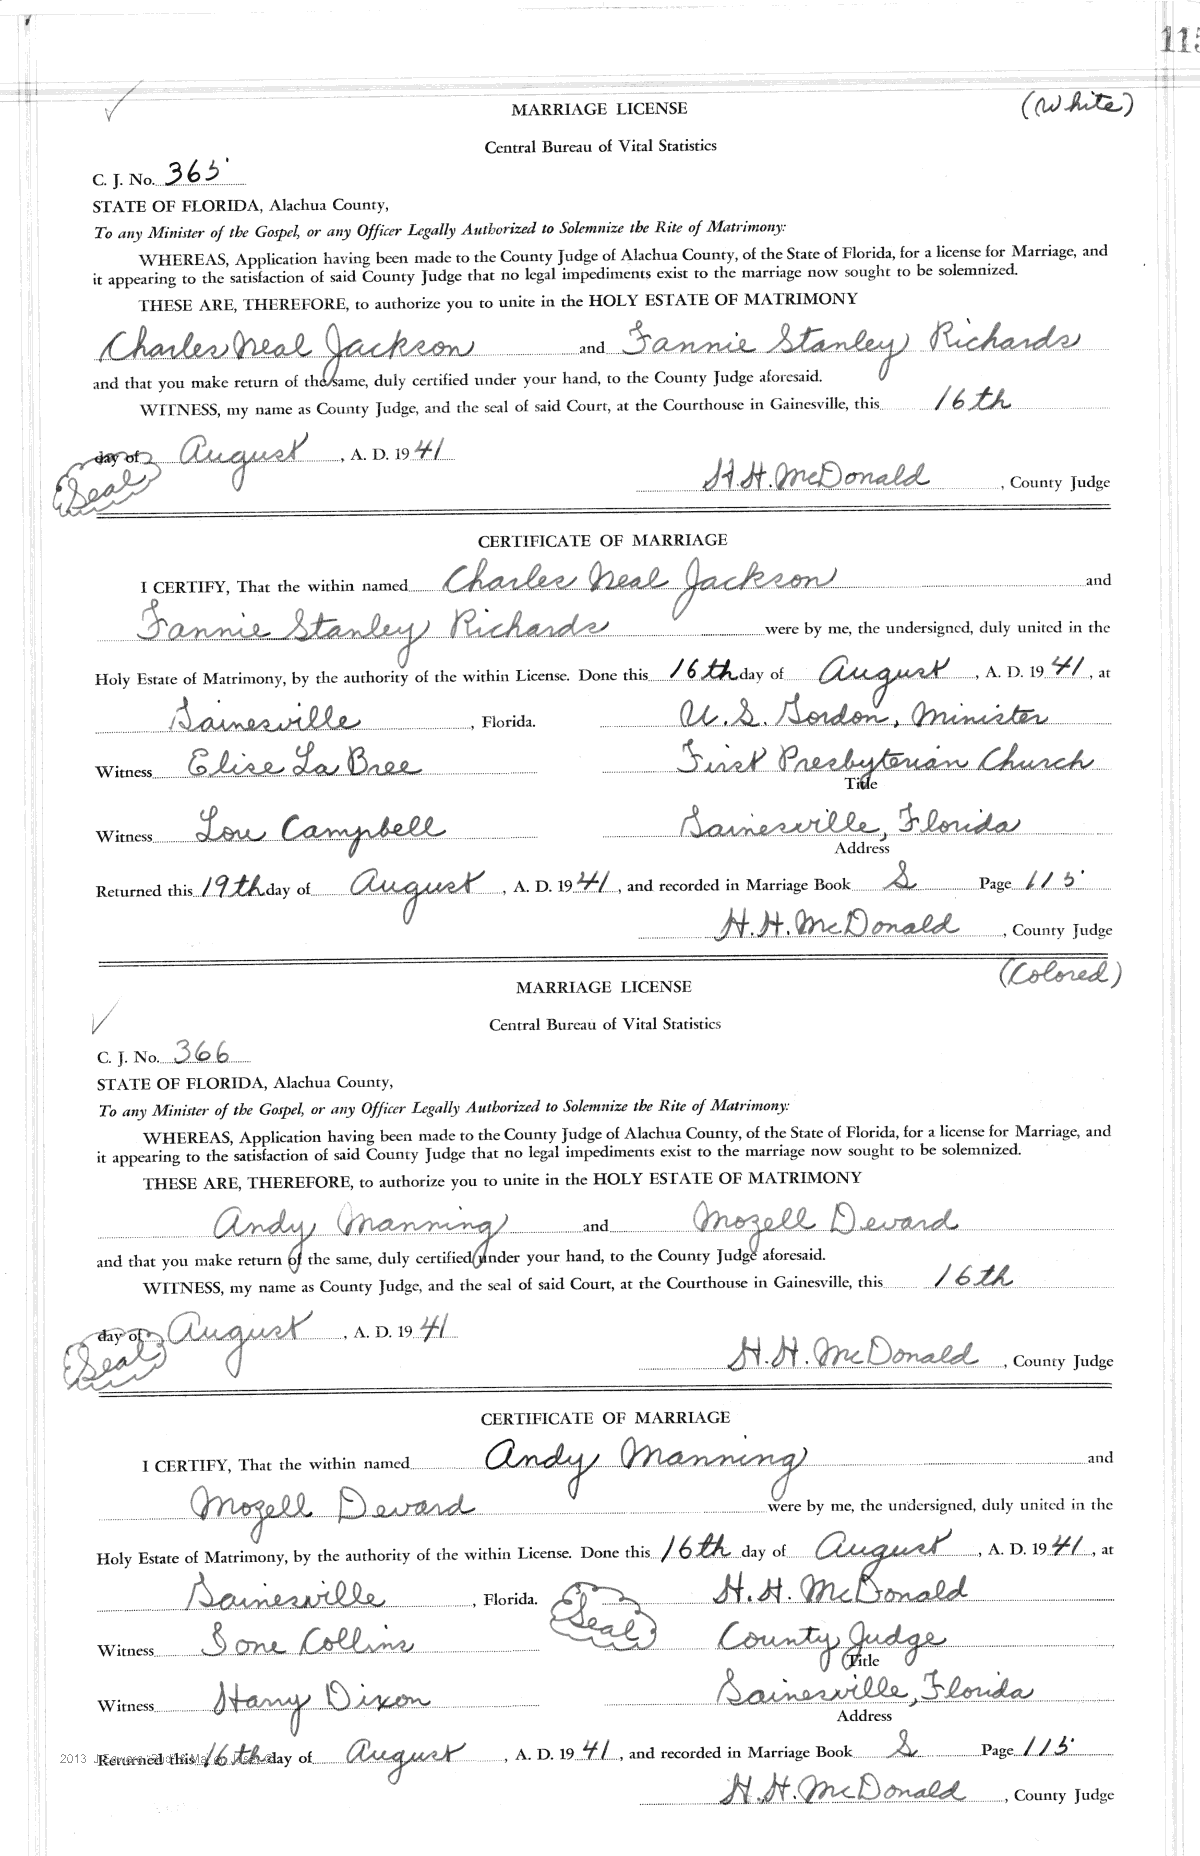 115
MARRIAGE LICENSE (White)
Central Bureau of Vital Statistics
C. J. No. 365
STATE OF FLORIDA, Alachua County,
To any Minister of the Gospel, or any Officer Legally Authorized to Solemnize the Rite of Matrimony:
WHEREAS, Application having been made to the County Judge of Alachua County, of the State of Florida, for a license for Marriage, and
it appearing to the satisfaction of said County Judge that no legal impediments exist to the marriage now sought to be solemnized.
THESE ARE, THEREFORE, to authorize you to unite in the HOLY ESTATE OF MATRIMONY
Charles Neal Jackson and Fannie Stanley Richards
and that you make return of the same, duly certified under your hand, to the County Judge aforesaid.
WITNESS, my name as County Judge, and the seal of said Court, at the Courthouse in Gainesville, this 16th
day of August, A. D. 1941
Seal H.H. McDonald, County Judge
CERTIFICATE OF MARRIAGE
I CERTIFY, That the within named Charles Neal Jackson and
Fannie Stanley Richards were by me, the undersigned, duly united in the
Holy Estate of Matrimony, by the authority of the within License. Done this 16th day of August, A. D. 1941, at
Gainesville, Florida. U. S. Gordon, Minister
Witness Elise La Bree First Presbyterian Church
Title
Witness Lou Campbell Gainesville, Florida
Address
Returned this 19th day of August, A. D. 1941, and recorded in Marriage Book S Page 115
H.H. McDonald, County Judge
(Colored)
MARRIAGE LICENSE
Central Bureau of Vital Statistics
C. J. No. 366
STATE OF FLORIDA, Alachua County,
To any Minister of the Gospel, or any Officer Legally Authorized to Solemnize the Rite of Matrimony:
WHEREAS, Application having been made to the County Judge of Alachua County, of the State of Florida, for a license for Marriage, and
it appearing to the satisfaction of said County Judge that no legal impediments exist to the marriage now sought to be solemnized.
THESE ARE, THEREFORE, to authorize you to unite in the HOLY ESTATE OF MATRIMONY
Andy Manning and Mozell Devard
and that you make return of the same, duly certified under your hand, to the County Judge aforesaid.
WITNESS, my name as County Judge, and the seal of said Court, at the Courthouse in Gainesville, this 16th
day of August, A. D. 1941
Seal H.H. McDonald, County Judge
CERTIFICATE OF MARRIAGE
I CERTIFY, That the within named Andy Manning and
Mozell Devard were by me, the undersigned, duly united in the
Holy Estate of Matrimony, by the authority of the within License. Done this 16th day of August, A. D. 1941, at
Gainesville, Florida. Seal H. H. McDonald
Witness Gone Collins County Judge
Title
Witness Harry Dixon Gainesville, Florida
Address
2013
Returned this 16th day of August, A. D. 1941, and recorded in Marriage Book S Page 115
H.H. McDonald, County Judge